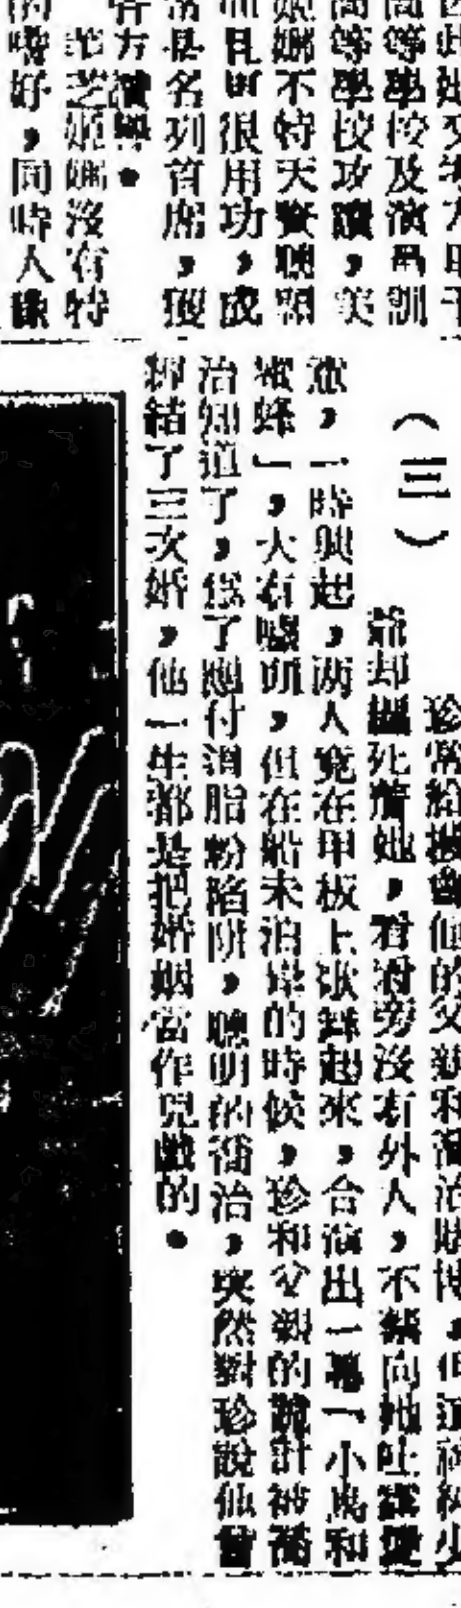 高等學校及演員訓
高等學校攻讀，美
姬娜不特天資聰穎
而且又很用功，成
常是名列首席，獲
各方讚譽●
芝姬娜沒有特
的嗜好，同時人
（三）
珍常給機會他的父親和喬治賭博，但這
爺却纏死着她，看看旁沒有外人，不禁向她吐露愛
意，一時興起，两人竟在甲板上歌舞起來，合演出一幕「小鳥和
蜜蜂」，大有 ，但在船未泊岸的時候，珍和父親的詭計被喬
治知道了，爲了應付這脂粉陷阱，聰明的喬治，突然對珍說他曾
經結了三次婚，他一生都是把婚姻當作兒戲的●